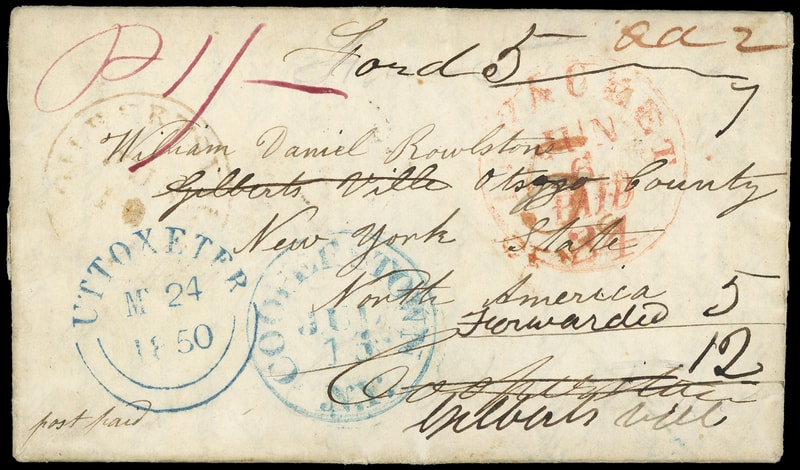 P 1/-
Ford 5
William Daniel Rowlstone
Gilberts Ville Otsego County
New York State
North America
Forwarded 5
12
Gilberts ville
post paid
UTTOXETER
MY 24
1850
COOPERSTOWN
JUL
13
N.Y.
JUN
6
PAID
24